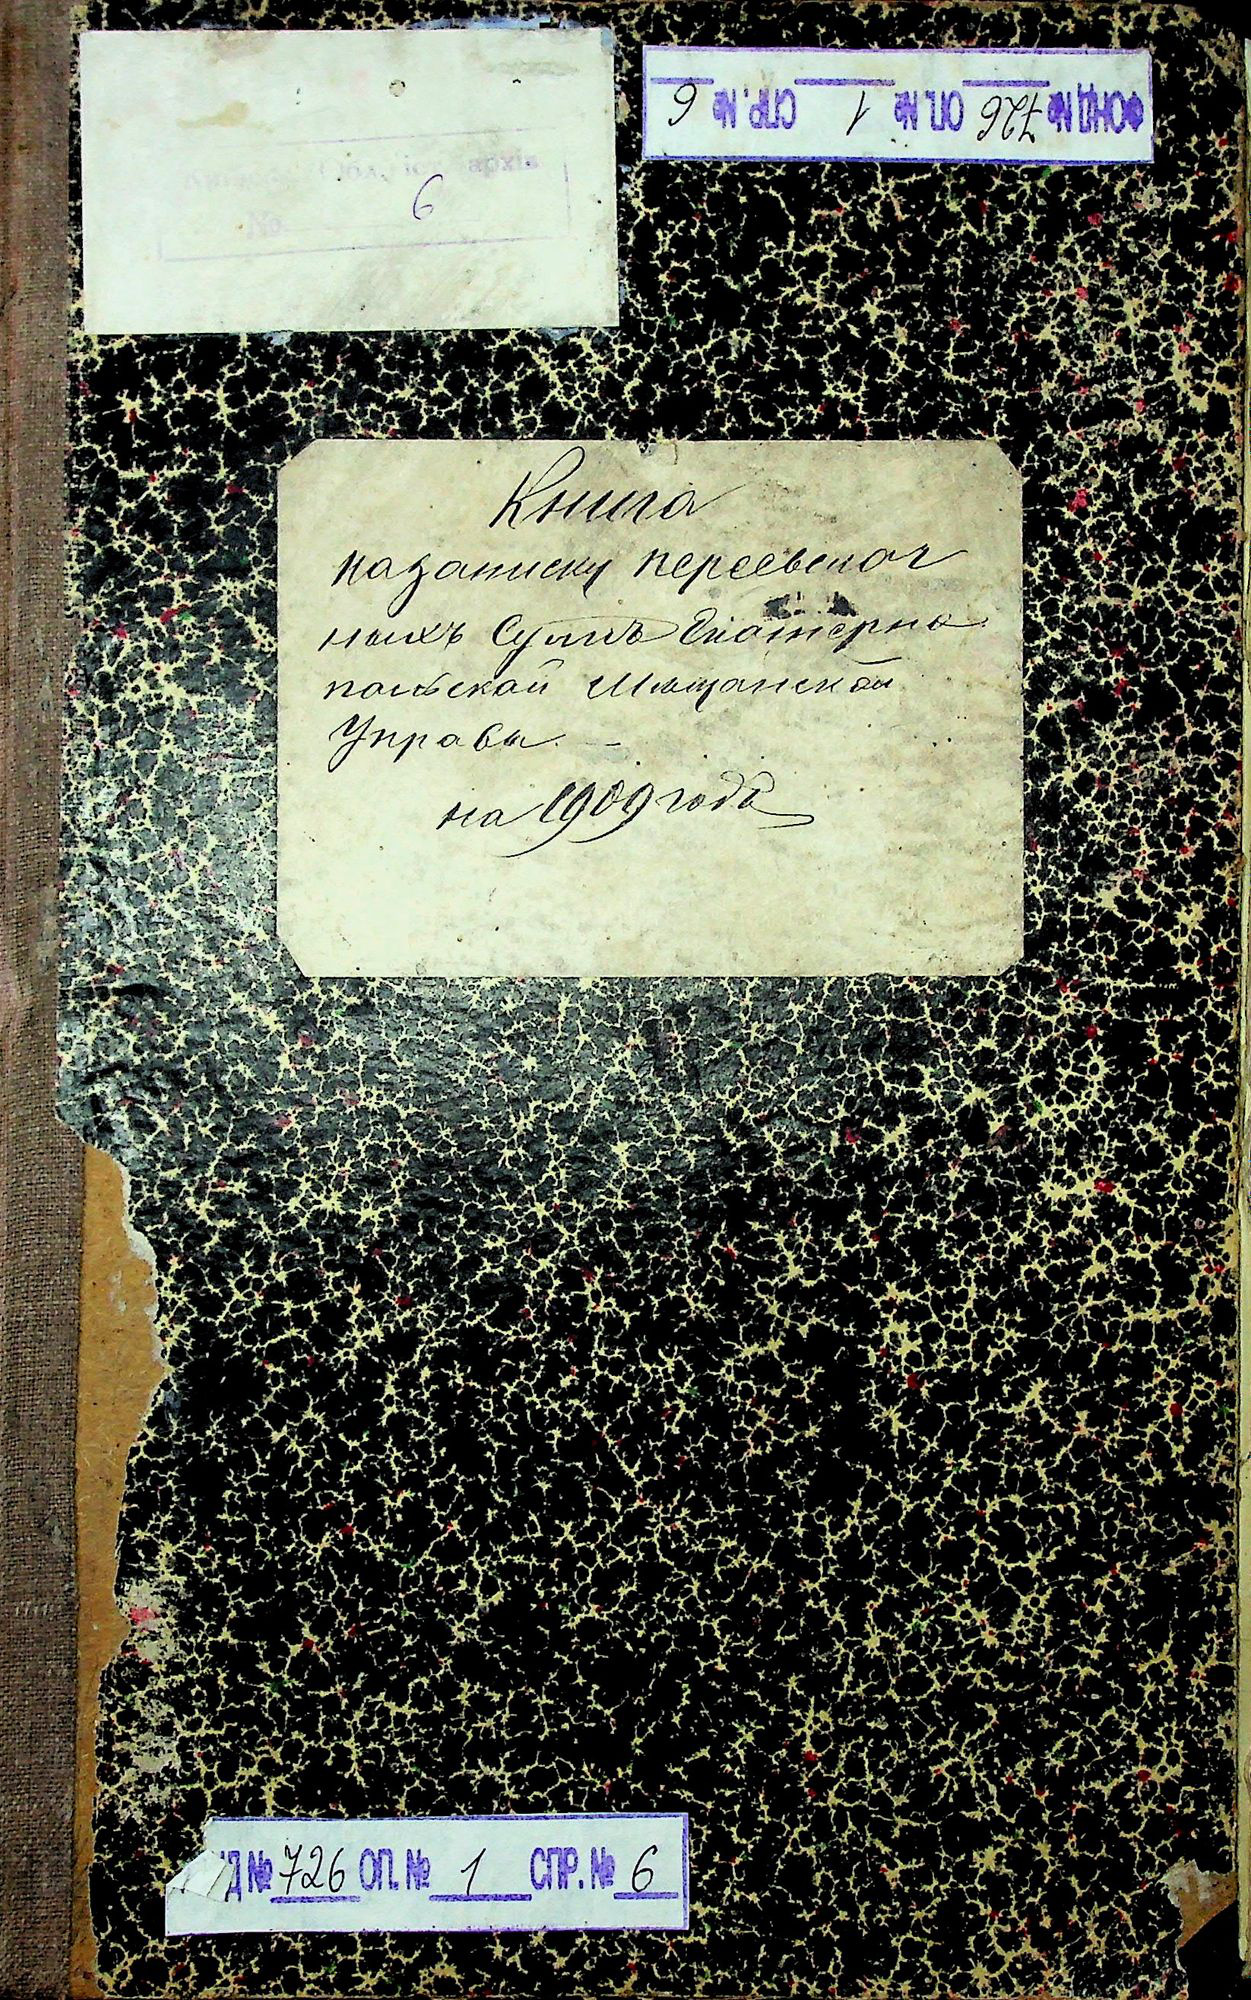 ФОНД № 726 ОП. № 1 СПР. № 6
архів
№ 6
Книга
на записку переевскоч
ныхъ Суммъ Екатерино
польской Мѣщанской
Управы. –
на 1909 годъ
Д № 726 ОП. № 1 СПР. № 6